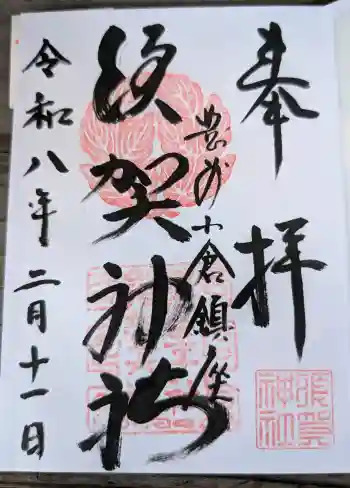 奉拝
豊前小倉鎮座
須賀神社
令和八年二月十一日
須賀神社